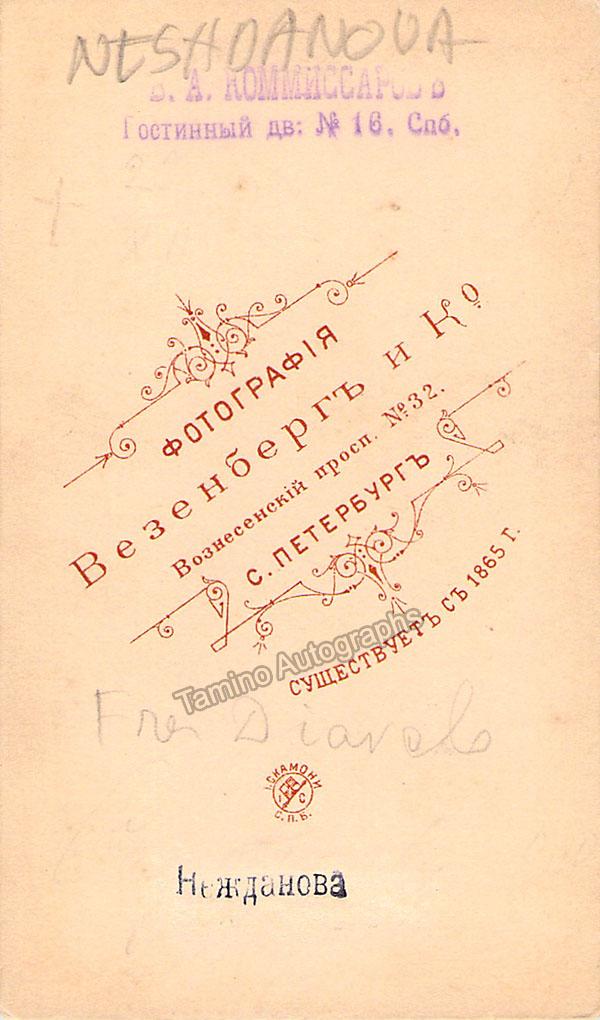 NESHDANOVA
В. А. КОММИССАРОВЪ
Гостинный дв: № 16. Спб.
ФОТОГРАФІЯ
Везенбергъ и Ко
Вознесенскій просп. №32.
С. ПЕТЕРБУРГЪ
СУЩЕСТВУЕТЪ СЪ 1865 Г.
Tamino Autographs
Fra Diavolo
І. СКАМОНИ
С.П.Б.
Нежданова